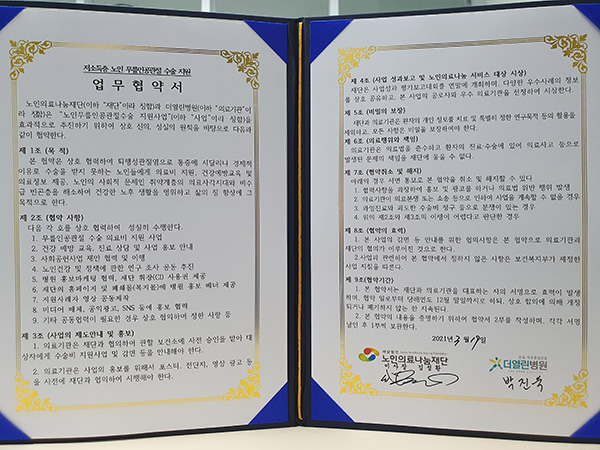 저소득층 노인 무릎인공관절 수술 지원
업 무 협 약 서
노인의료나눔재단(이하 "재단"이라 칭함)과 더열린병원(이하 "의료기관"이
라 칭함)은 "노인무릎인공관절 수술 지원사업"(이하 "사업"이라 칭함)을
효과적으로 추진하기 위하여 상호 신의, 성실의 원칙을 바탕으로 다음과
같이 협약한다.
제 1조 (목 적)
본 협약은 상호 협력하여 퇴행성관절염으로 통증에 시달리나 경제적
이유로 수술을 받지 못하는 노인들에게 의료비 지원, 건강예방교육 및
의료정보 제공, 노인의 사회적 문제인 취약계층의 의료사각지대와 비수
급 빈곤층을 해소하여 건강한 노후 생활을 영위하고 삶의 질 향상에 그
목적으로 한다.
제 2조 (협약 사항)
다음 각 호를 상호 협력하여 성실히 수행한다.
1. 무릎인공관절 수술 의료비 지원 사업
2. 건강 예방 교육, 진료 상담 및 사업 홍보 안내
3. 사회공헌사업 제안 협력 및 이행
4. 노인건강 및 정책에 관한 연구 조사 공동 추진
5. 병원 홍보마케팅 협력, 재단 휘장(CI) 사용권 제공
6. 재단의 홈페이지 및 폐쇄몰(복지몰)에 병원 홍보 배너 제공
7. 지원사례자 영상 공동제작
8. 미디어 배체, 공익광고, SNS 등에 홍보 협력
9. 기타 공동협력이 필요한 경우 상호 협의하여 정한 사항 등
제 3조 (사업의 제도안내 및 홍보)
1. 의료기관은 재단과 협의하여 관할 보건소에 사전 승인을 받아 대
상자에게 수술비 지원사업 및 감면 등을 안내해야 한다.
2. 의료기관은 사업의 홍보를 위해서 포스터, 전단지, 영상 광고 등
을 사전에 재단과 협의하여 시행해야 한다.
제 4조 (사업 성과보고 및 노인의료나눔 서비스 대상 시상)
재단은 사업성과 평가보고대회를 연말에 개최하며, 다양한 우수사례의 정보
를 상호 공유하고, 본 사업의 공로자와 우수 의료기관을 선정하여 시상한다.
제 5조 (비밀의 보장)
재단과 의료기관은 환자의 개인 정보를 치료 및 특별히 정한 연구목적 등의 활용을
제외하고, 모든 사항은 비밀을 보장하여야 한다.
제 6조 (의료행위와 책임)
의료기관은 의료법을 준수하고 환자의 진료·수술에 있어 의료사고 등으로
발생된 문제의 책임을 재단에 물을 수 없다.
제 7조 (협약취소 및 해지)
아래의 경우 서면 통보로 본 협약을 취소 및 해지할 수 있다
1. 협력사항을 과장하여 홍보 및 광고를 하거나 의료법 위반 행위 발생
2. 의료기관이 의료분쟁 또는 소송 등으로 인하여 사업을 계속할 수 없을 경우
3. 과잉진료와 과도한 수술비 청구 등으로 분쟁이 있는 경우
4. 위의 제2조와 제3조의 이행이 어렵다고 판단한 경우
제 8조 (협약의 효력)
1. 본 사업의 감면 등 안내를 위한 협의사항은 본 협약으로 의료기관과
재단의 협의가 이루어진 것으로 한다.
2.사업과 관련하여 본 협약에서 정하지 않은 사항은 보건복지부가 제정한
사업 지침을 따른다.
제 9조(협약기간)
1. 본 협약서는 재단과 의료기관을 대표하는 자의 서명으로 효력이 발생
하며, 협약 일로부터 당해연도 12월 말일까지로 하되, 상호 합의에 의해 개정
되거나 폐기하지 않는 한 지속된다.
2. 본 협약의 내용을 증명하기 위하여 협약서 2부를 작성하며, 각각 서명
날인 후 1부씩 보관한다.
2021년 3월 17일
노인의료나눔재단
이 사 장 김 성 환
더열린병원
박진욱